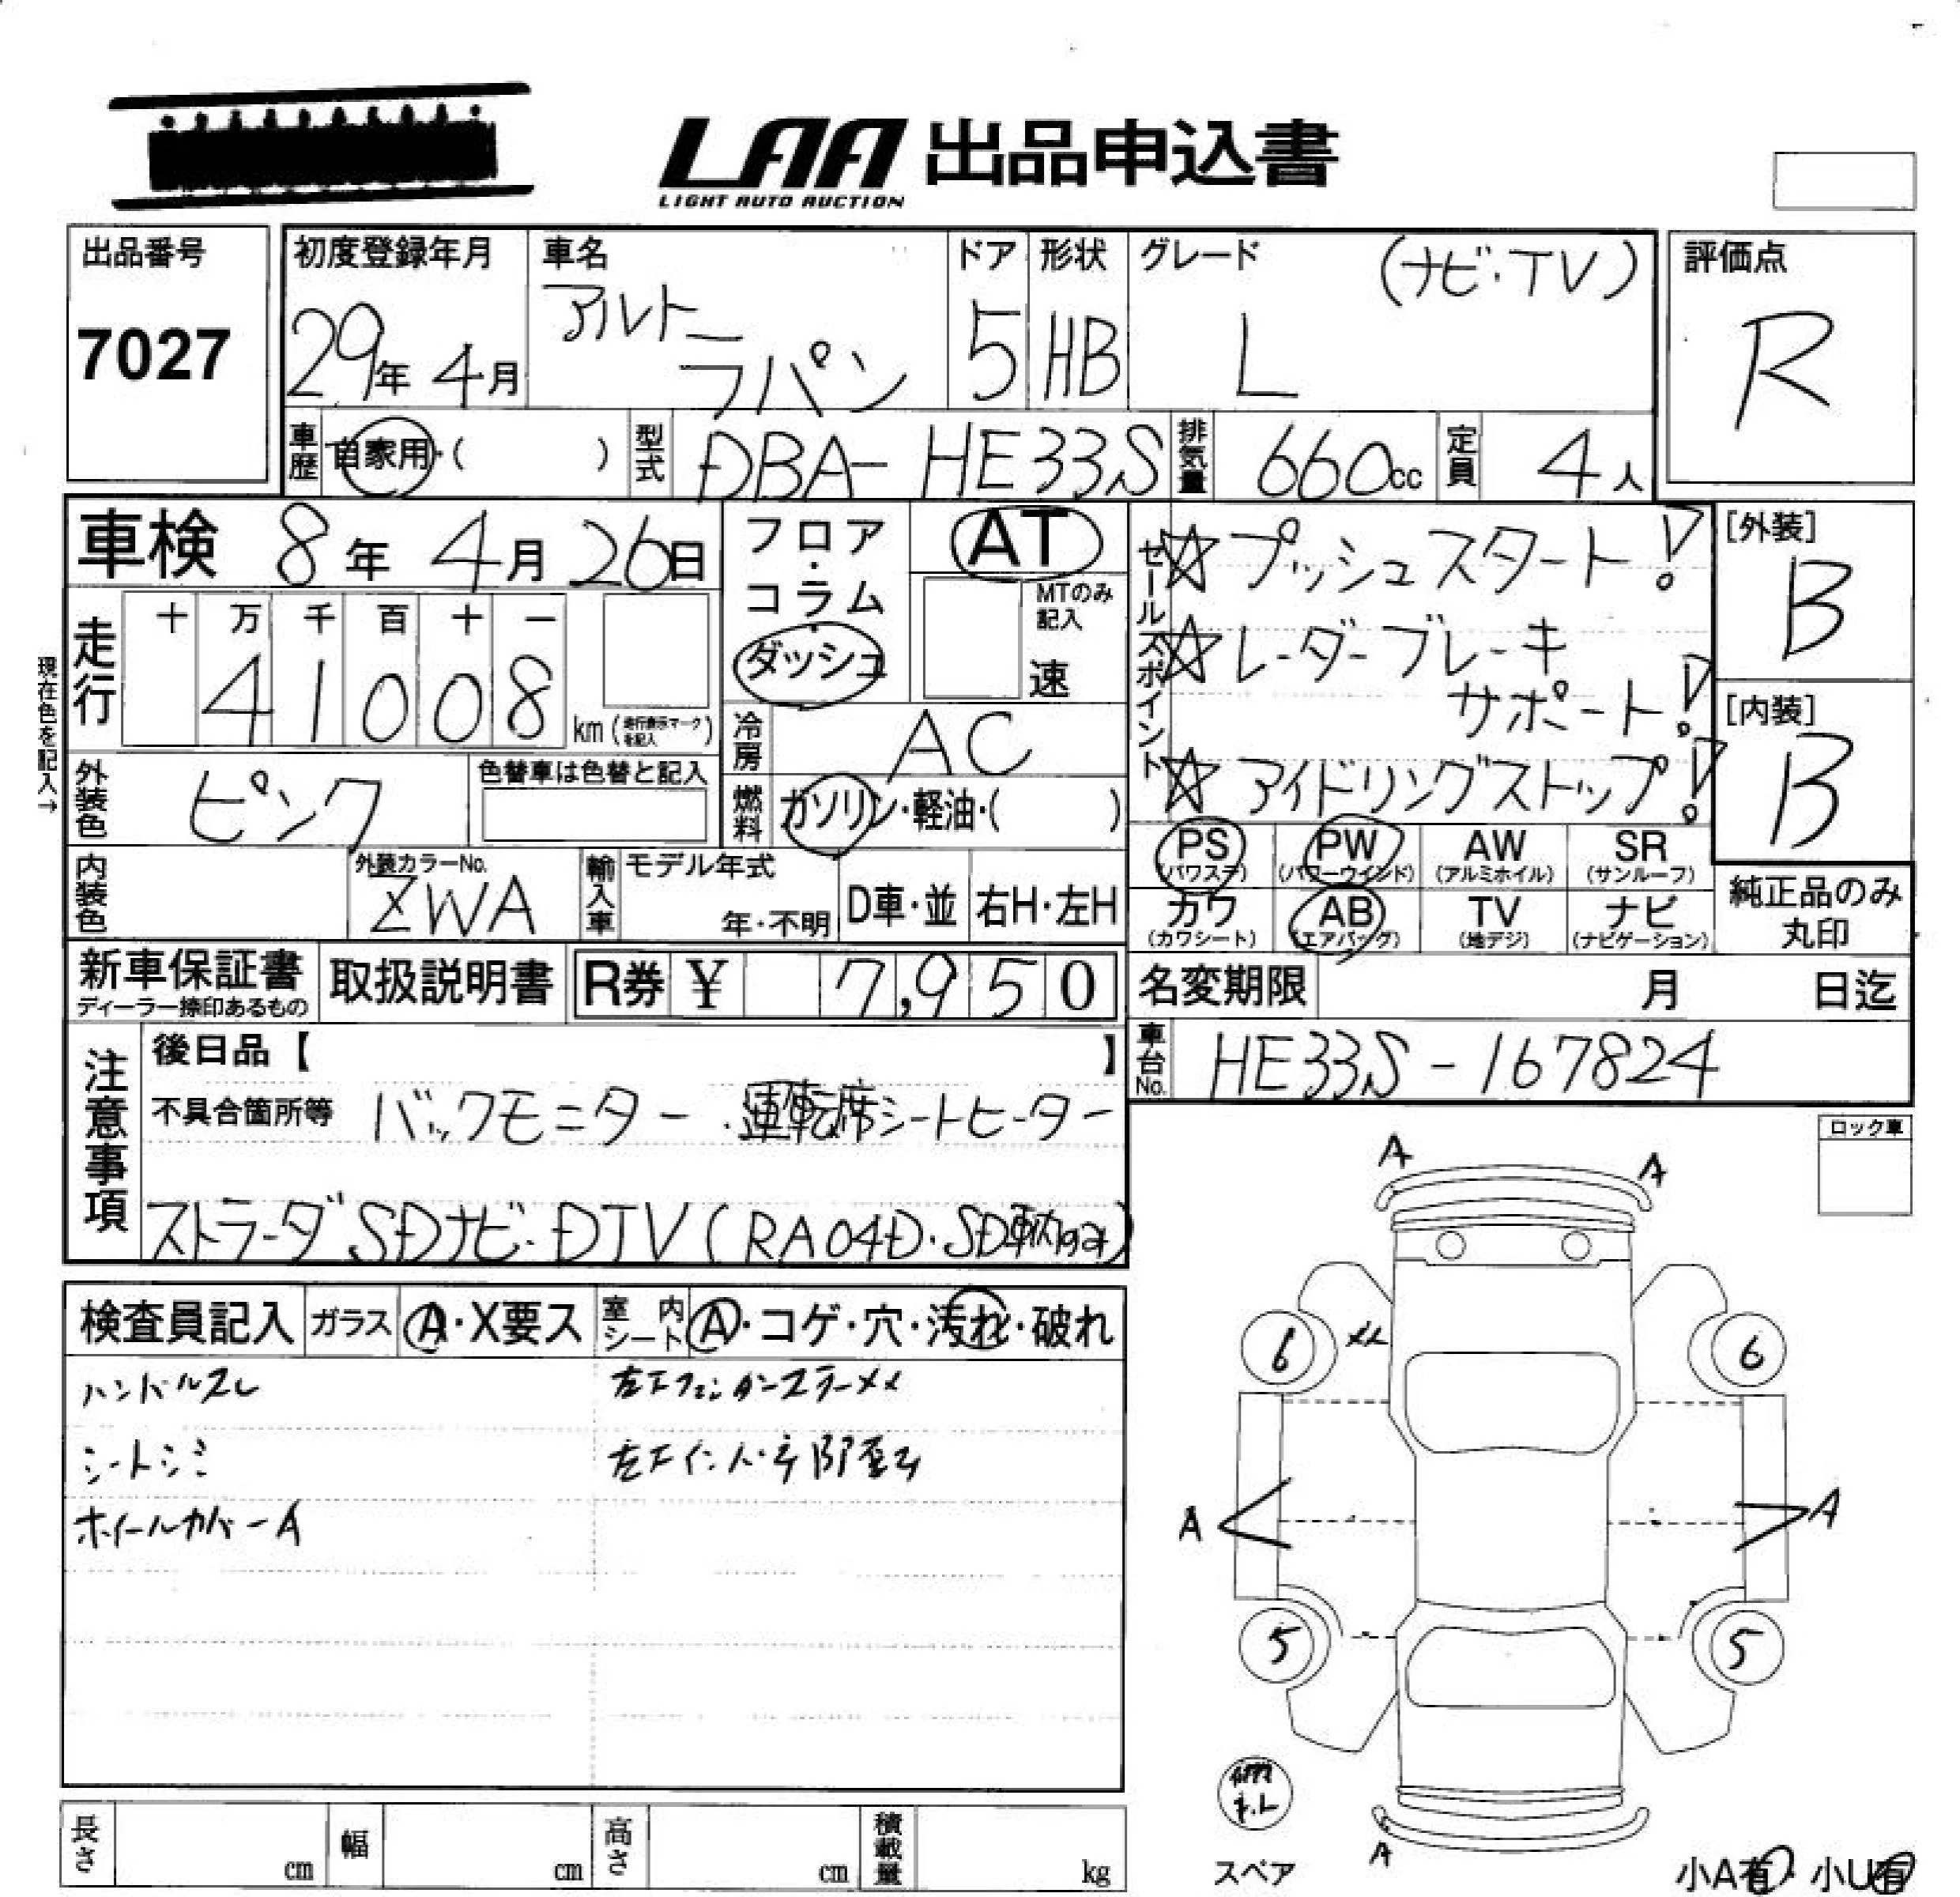 LAA 出品申込書
LIGHT AUTO AUCTION
出品番号
7027
初度登録年月
29年 4月
車名
アルト
ラパン
ドア
5
形状
HB
グレード
(ナビ・TV)
L
評価点
R
車歴
自家用・( )
型式
DBA-HE33S
排気量
660cc
定員
4人
車検
8年 4月 26日
フロア・コラム・ダッシュ
AT
MTのみ記入
速
セールスポイント
☆プッシュスタート!
☆レーダーブレーキ
サポート!
☆アイドリングストップ!
[外装]
B
[内装]
B
現在色を記入→
走行
十 万 千 百 十 一
4 1 0 0 8
km (走行表示マークを記入)
冷房
AC
外装色
ピンク
色替車は色替と記入
燃料
ガソリン・軽油・( )
内装色
外装カラーNo.
ZWA
輸入車
モデル年式
年・不明
D車・並
右H・左H
PS
(パワステ)
PW
(パワーウインド)
AW
(アルミホイル)
SR
(サンルーフ)
カワ
(カワシート)
AB
(エアバッグ)
TV
(地デジ)
ナビ
(ナビゲーション)
純正品のみ
丸印
新車保証書
ディーラー捺印あるもの
取扱説明書
R券 ¥ 7,950
名変期限
月 日迄
車台No.
HE33S-167824
注意事項
後日品【 】
不具合箇所等
バックモニター・運転席シートヒーター
ストラーダSDナビ・DTV(RA04D・SD車内
ロック車
検査員記入
ガラス
A・X要ス
室内シート
A・コゲ・穴・汚れ・破れ
ハンドルスレ
シートシミ
ホイールカバーA
A
A
6
6
A
A
5
5
A
スペア
小A有・小U有
長さ
cm
幅
cm
高さ
cm
積載量
kg